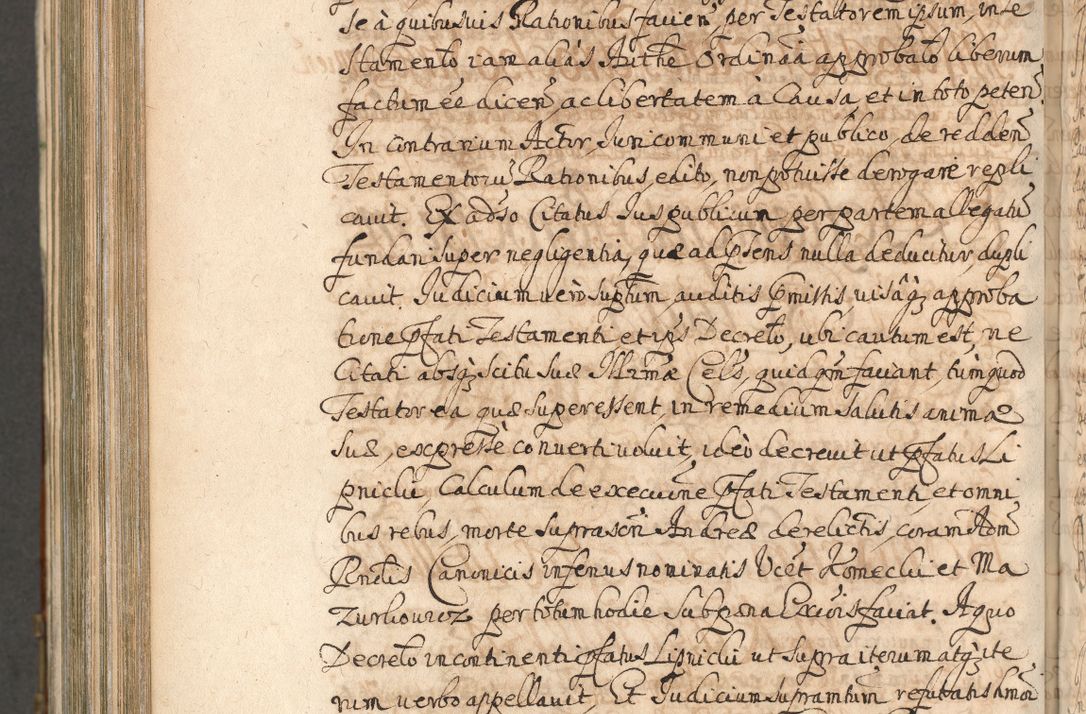 se à quibusvis Rationibus facien̄ per Testatorem ipsum, in te
stamento iam aliàs Authe Ordinoā approbato liberum
factum eē dicen̄, ac libertatem à Causa, et in toto peten̄.
In contrarium Actor, Juri communi et publico, de redden̄
Testamentorū Rationibus, edito, non potuisse derogare repli
cavit. Ex adso Citatus Jus publicum per partem allegatū
fundari super negligentia, quæ ad p̄sens nulla deducitur, dupli
cavit. Judicium vero supt̄um auditis p̄missis, visáq̨ approba
tione p̄fati Testamenti et ip̄s Decreto, ubi cautum est, ne
Citati absq̨ scitu suæ Illr̄mæ Cels, quid q̄m faciant, tùm quod
Testator ea quæ superessent, in remedium salutis animæ
suæ, expressè converti voluit, ideò decrevit ut p̄fatus Li
pnicki, Calculum de execuīne p̄fati Testamenti, et omni
bus rebus, morte suprascr̄i Andreæ derelictis, coram Adm̄
Rn̄dis Canonicis inferius nominatis Ucet Komecki et Ma
zurkowicz per totum hodie sub pæna Excōis faciat. A quo
Decreto incontinenti p̄fatus Lipnicki ut supra iterum atq̨ ite
rum verbo appellavit, Et Judicium supramtum refutatis